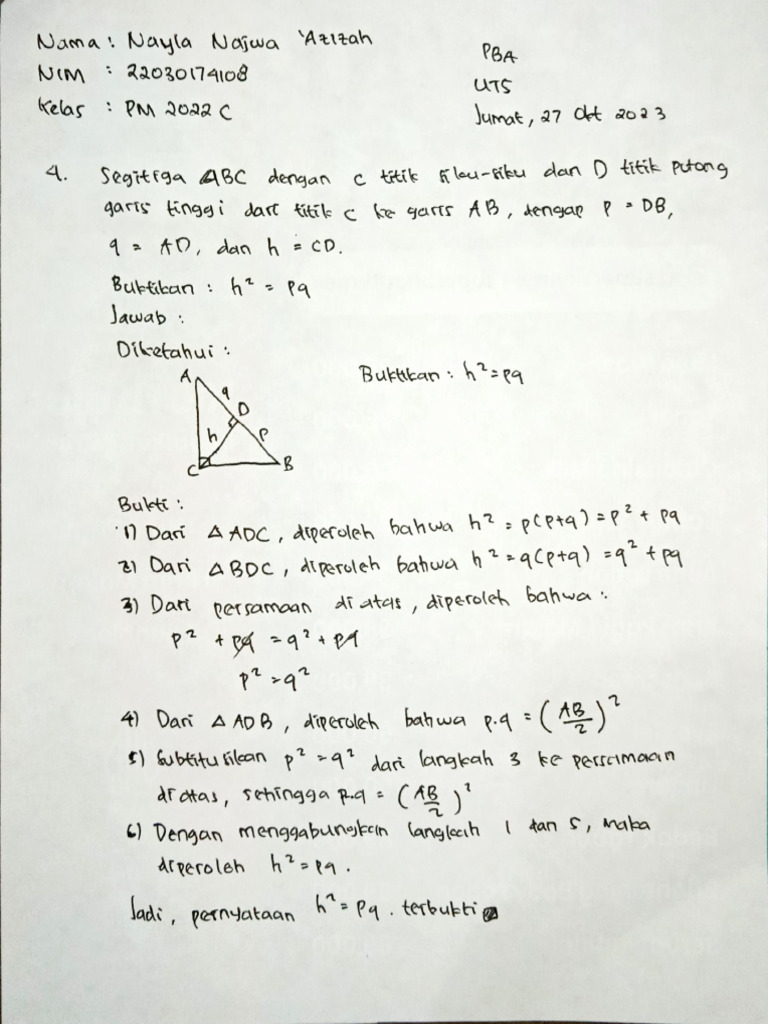 Nama : Nayla Najwa 'Azizah
NIM : 22030174108
Kelas : PM 2022 C
PBA
UTS
Jumat, 27 Okt 2023
4. Segitiga ABC dengan C titik siku-siku dan D titik potong
garis tinggi dari titik C ke garis AB, dengan p = DB,
q = AD, dan h = CD.
Buktikan : h² = pq
Jawab :
Diketahui :
Buktikan : h² = pq
A
q
D
h
p
C
B
Bukti :
1) Dari △ ADC, diperoleh bahwa h² = p(p+q) = p² + pq
2) Dari △ BDC, diperoleh bahwa h² = q(p+q) = q² + pq
3) Dari persamaan di atas, diperoleh bahwa :
p² + pq = q² + pq
p² = q²
4) Dari △ ADB, diperoleh bahwa p.q = (AB/2)²
5) Subtitusikan p² = q² dari langkah 3 ke persamaan
di atas, sehingga p.q = (AB/2)²
6) Dengan menggabungkan langkah 1 dan 5, maka
diperoleh h² = pq.
Jadi, pernyataan h² = pq. terbukti